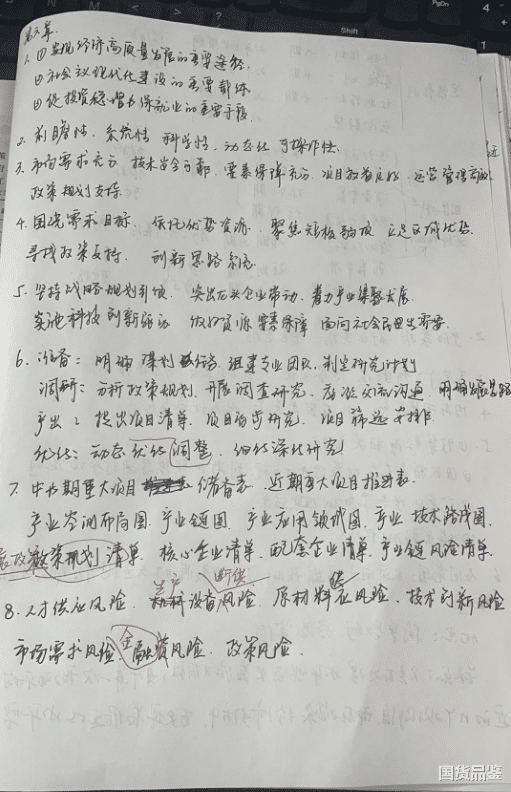 第六章.
1. ①实现经济高质量发展的重要途径.
②社会主义现代化建设的重要载体
③促投资稳增长保就业的重要手段
2. 前瞻性. 系统性 科学性. 动态性 可操作性.
3. 市场需求充分 技术安全可靠. 要素保障充分. 项目效益良好. 运营管理高效
政策规划支持.
4. 围绕需求目标. 依托优势资源. 聚焦短板弱项 立足区域优势.
寻找政策支持. 创新思路系统.
5. 坚持战略规划引领. 突出龙头企业带动. 着力产业集聚发展.
实施科技创新驱动 做好资源要素保障 面向社会民生需要.
6. 准备: 明确谋划任务. 组建专业团队. 制定研究计划
调研: 分析政策规划. 开展调查研究. 座谈交流沟通. 明确思路
产出: 提出项目清单. 项目初步研究. 项目筛选安排
优化: 动态优化调整. 细化深化研究
7. 中长期重大项目储备表. 近期重大项目推进表.
产业空间布局图. 产业链图. 产业应用领域图. 产业技术路线图.
政策规划清单. 核心企业清单. 配套企业清单. 产业链风险清单.
8. 人才供应风险. 生产设备断供风险. 原材料供应风险. 技术创新风险
市场需求风险. 金融风险. 政策风险.
PgDn
Shift
国货品鉴